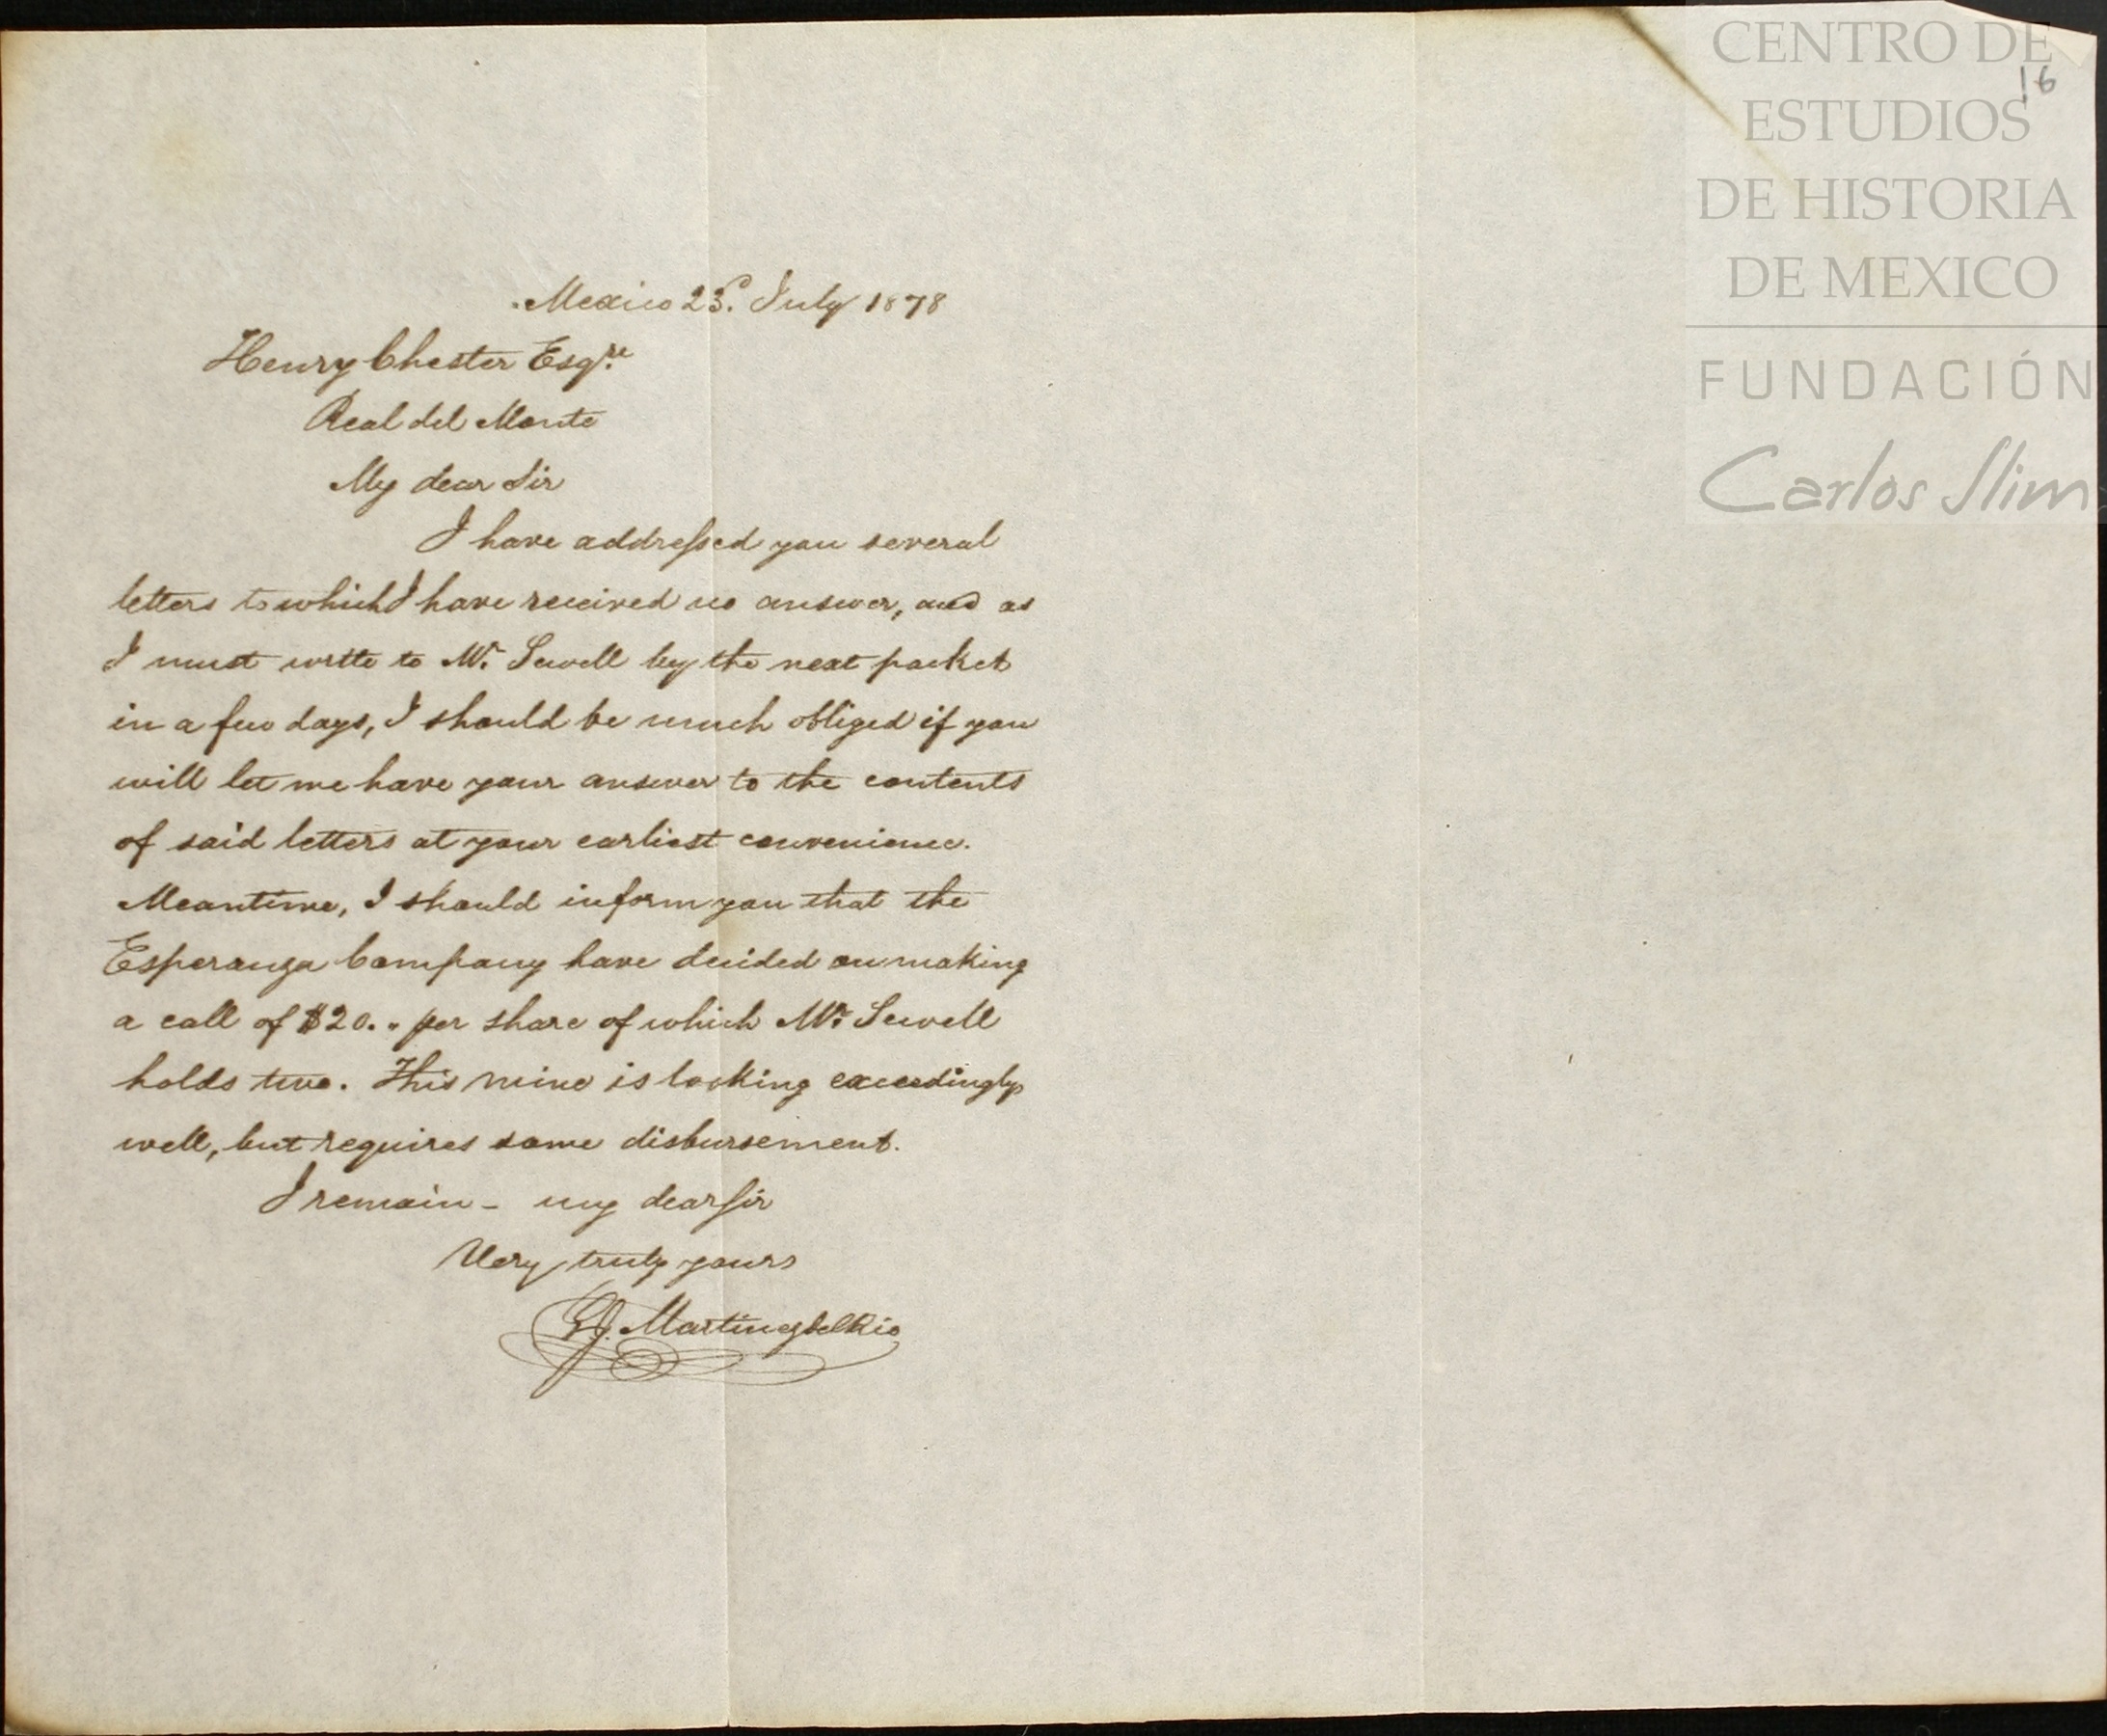 Mexico 23d. July 1878
Henry Chester Esqre.
Real del Monte
My dear Sir
I have addressed you several
letters to which I have received no answer, and as
I must write to Mr. Sewell by the next packet
in a few days, I should be much obliged if you
will let me have your answer to the contents
of said letters at your earliest convenience.
Meantime, I should inform you that the
Esperanza Company have decided on making
a call of $20. " per share of which Mr. Sewell
holds two. This mine is looking exceedingly
well, but requires some disbursement.
I remain - my dear Sir
Very truly yours
Martinez del Rio
16
CENTRO DE
ESTUDIOS
DE HISTORIA
DE MEXICO
FUNDACIÓN
Carlos Slim